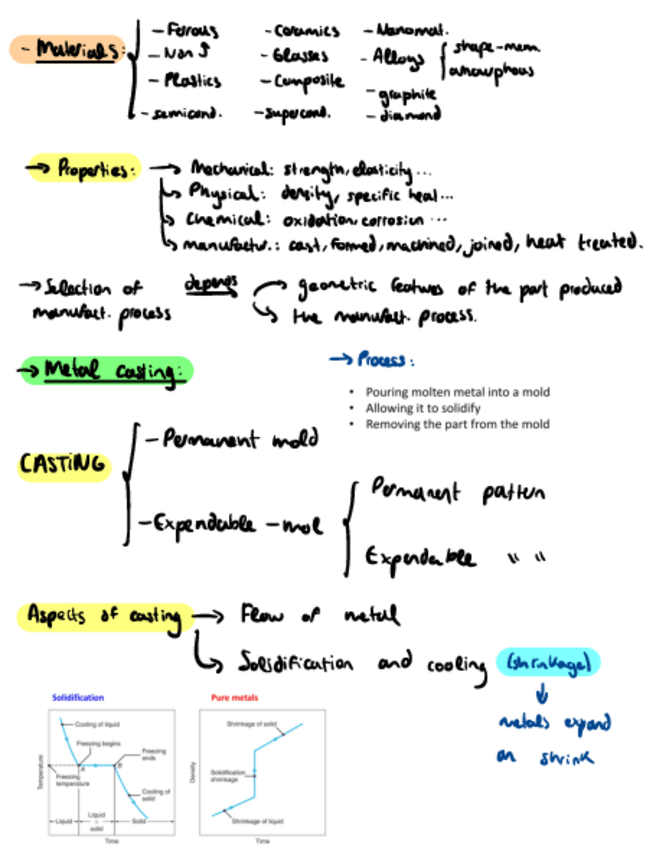 - Materials:
- Ferrous - Ceramics - Nanomat.
- Non ↑ - Glasses - Alloys { shape-mem.
amourphous
- Plastics - Composite - graphite
- semicond. - supercond. - diamond
→ Properties: → Mechanical: strength, elasticity...
↳ Physical: density, specific heat...
↳ Chemical: oxidation, corrosion ...
↳ manufactur.: cast, formed, machined, joined, heat treated.
→ Selection of manufact. process depends → geometric features of the part produced
↳ the manufact. process.
→ Metal casting:
→ Process:
• Pouring molten metal into a mold
• Allowing it to solidify
• Removing the part from the mold
CASTING
- Permanent mold
- Expendable - mol
Permanent pattern
Expendable " "
Aspects of casting → Flow of metal
↳ Solidification and cooling (shrinkage)
↓
metals expand
on shrink
Solidification
Cooling of liquid
Freezing begins
Freezing ends
A
B
Freezing temperature
Cooling of solid
Liquid
Liquid + solid
Solid
Temperature
Time
Pure metals
Shrinkage of solid
Solidification shrinkage
Shrinkage of liquid
Density
Time